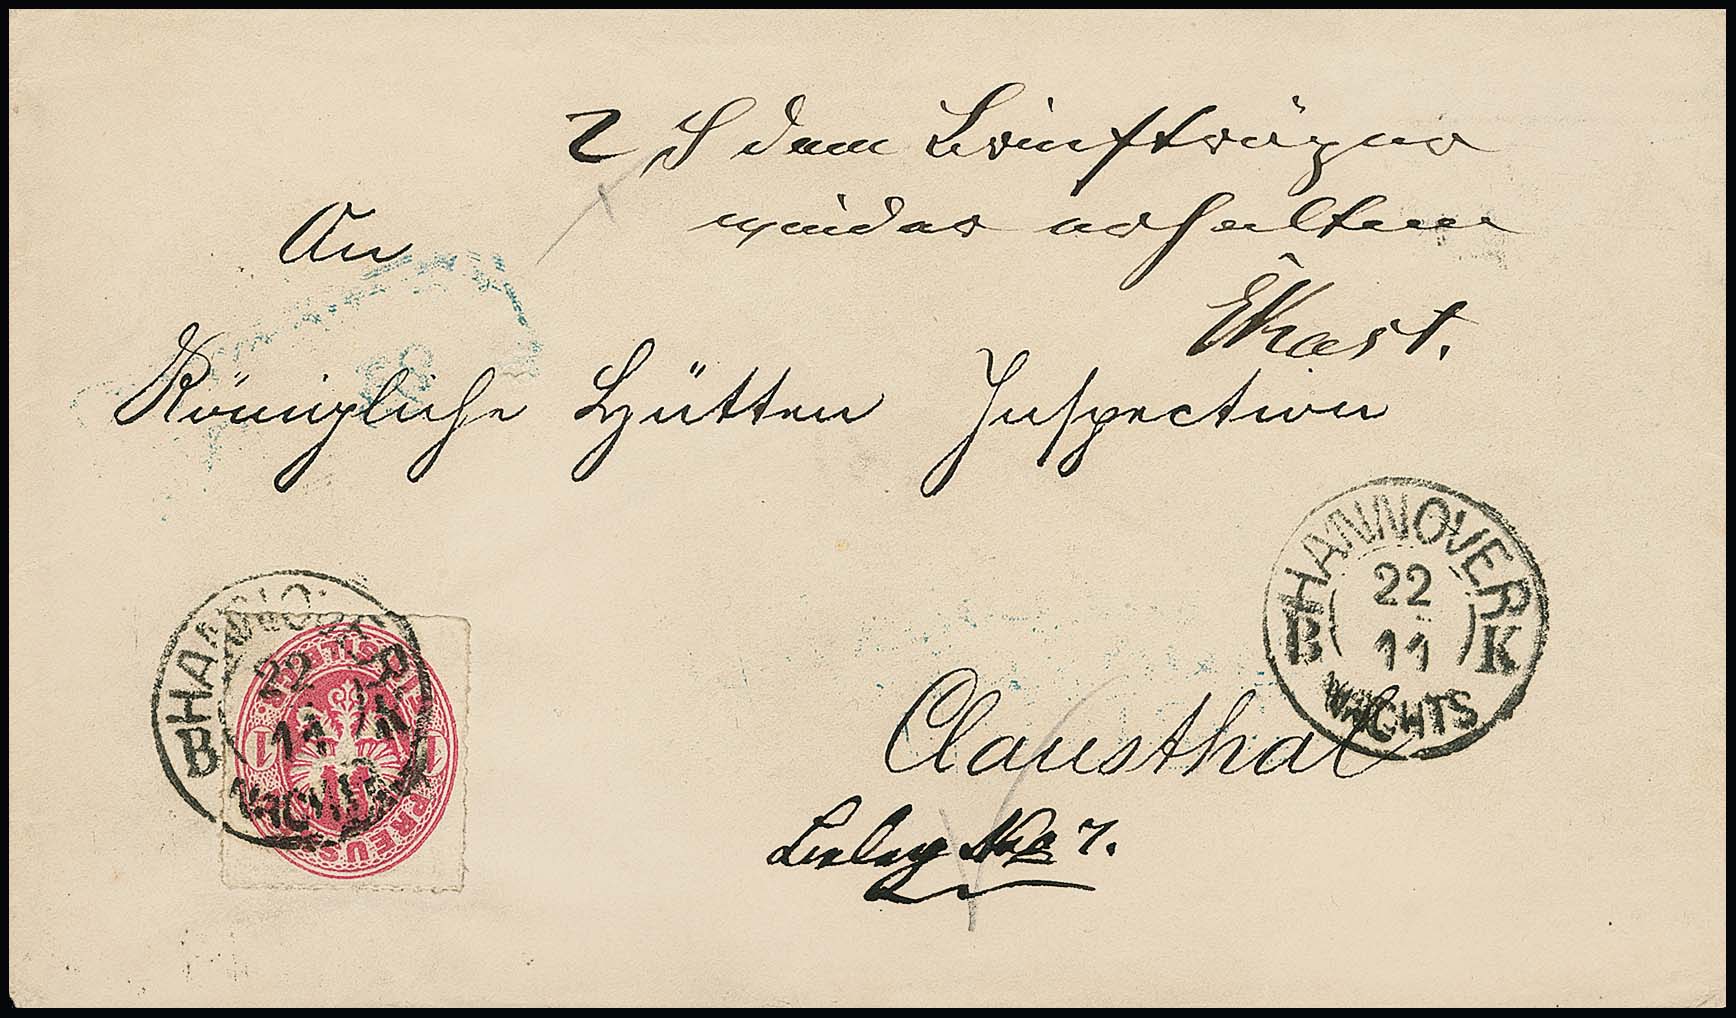 2 ₰ dem Briefträger
wieder erhalten
An
EKast.
Königliche Hütten Inspection
HANNOVER
22
11
B K
NACHTS
HANNOVER
22
11
B K
NACHTS
SILBERGR.
1 1
PREUSS
Clausthal
Beleg No 7.